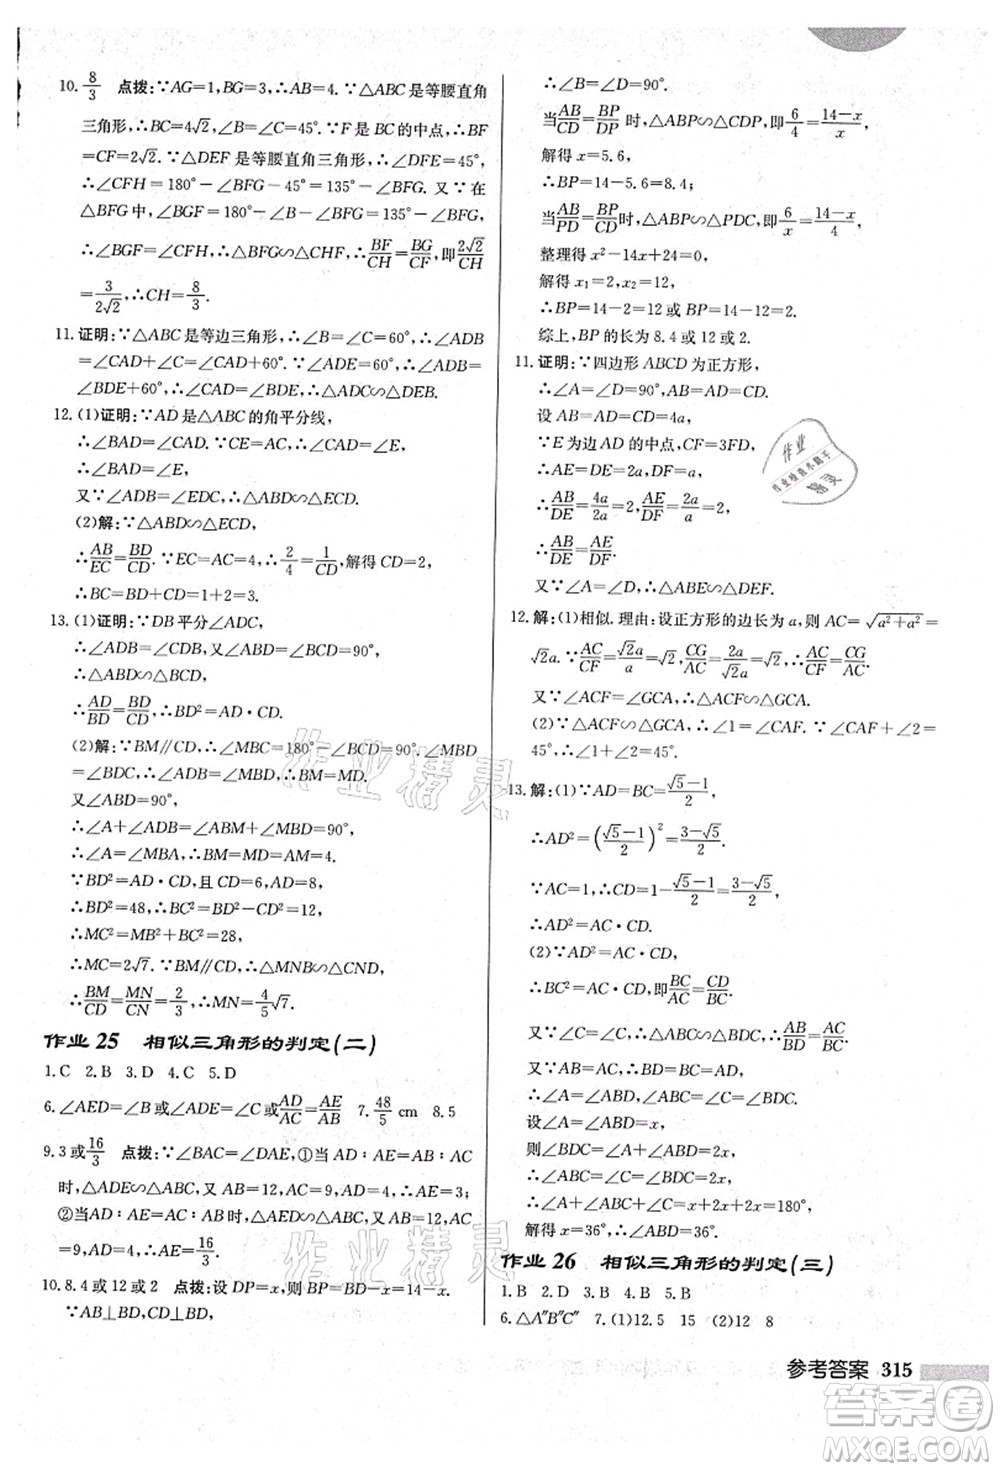 10. 8/3 点拨:∵AG=1,BG=3,∴AB=4.∵△ABC是等腰直角
三角形,∴BC=4√2,∠B=∠C=45°.∵F是BC的中点,∴BF
=CF=2√2.∵△DEF是等腰直角三角形,∴∠DFE=45°,
∴∠CFH=180°-∠BFG-45°=135°-∠BFG.又∵在
△BFG中,∠BGF=180°-∠B-∠BFG=135°-∠BFG,
∴∠BGF=∠CFH,∴△BFG∽△CHF,∴BF/CH=BG/CF,即2√2/CH
=3/2√2,∴CH=8/3.
11.证明:∵△ABC是等边三角形,∴∠B=∠C=60°,∴∠ADB
=∠CAD+∠C=∠CAD+60°.∵∠ADE=60°,∴∠ADB=
∠BDE+60°,∴∠CAD=∠BDE,∴△ADC∽△DEB.
12.(1)证明:∵AD是△ABC的角平分线,
∴∠BAD=∠CAD.∵CE=AC,∴∠CAD=∠E,
∴∠BAD=∠E,
又∵∠ADB=∠EDC,∴△ABD∽△ECD.
(2)解:∵△ABD∽△ECD,
∴AB/EC=BD/CD.∵EC=AC=4,∴2/4=1/CD,解得CD=2,
∴BC=BD+CD=1+2=3.
13.(1)证明:∵DB平分∠ADC,
∴∠ADB=∠CDB,又∵∠ABD=∠BCD=90°,
∴△ABD∽△BCD,
∴AD/BD=BD/CD,∴BD²=AD·CD.
(2)解:∵BM∥CD,∴∠MBC=180°-∠BCD=90°.∠MBD
=∠BDC,∴∠ADB=∠MBD,∴BM=MD.
又∵∠ABD=90°,
∴∠A+∠ADB=∠ABM+∠MBD=90°,
∴∠A=∠MBA,∴BM=AM=4.
∵BD²=AD·CD,且CD=6,AD=8,
∴BD²=48,∴BC²=BD²-CD²=12,
∴MC²=MB²+BC²=28,
∴MC=2√7.∵BM∥CD,∴△MNB∽△CND,
∴BM/CD=MN/CN=2/3,∴MN=4/5√7.
作业25 相似三角形的判定(二)
1.C 2.B 3.D 4.C 5.D
6.∠AED=∠B或∠ADE=∠C或AD/AC=AE/AB 7.48/5 cm 8.5
9.3或16/3 点拨:∵∠BAC=∠DAE,①当AD∶AE=AB∶AC
时,△ABC∽△ADE,又AB=12,AC=9,AD=4,∴AE=3;
②当AD∶AE=AC∶AB时,△ABC∽△AED,又AB=12,AC
=9,AD=4,∴AE=16/3.
10.8.4或12或2 点拨:设DP=x,则BP=BD-x=14-x.
∵AB⊥BD,CD⊥BD,
∴∠B=∠D=90°.
当AB/CD=BP/DP时,△ABP∽△CDP,即6/4=14-x/x,
解得x=5.6,
∴BP=14-5.6=8.4;
当AB/PD=BP/CD时,△ABP∽△PDC,即6/x=14-x/4,
整理得x²-14x+24=0,
解得x₁=2,x₂=12,
∴BP=14-2=12或BP=14-12=2.
综上,BP的长为8.4或12或2.
11.证明:∵四边形ABCD为正方形,
∴∠A=∠D=90°,AB=AD=CD.
设AB=AD=CD=4a,
∵E为边AD的中点,CF=3FD,
∴AE=DE=2a,DF=a,
∴AB/DE=4a/2a=2,AE/DF=2a/a=2,
∴AB/DE=AE/DF.
又∵∠A=∠D,∴△ABE∽△DEF.
12.解:(1)相似.理由:设正方形的边长为a,则AC=√a²+a²=
√2a.∵AC/CF=√2a/a=√2,CG/AC=2a/√2a=√2,∴AC/CF=CG/AC.
又∵∠ACF=∠GCA,∴△ACF∽△GCA.
(2)∵△ACF∽△GCA,∴∠1=∠CAF.∵∠CAF+∠2=
45°,∴∠1+∠2=45°.
13.解:(1)∵AD=BC=√5-1/2,
∴AD²=(√5-1/2)²=3-√5/2.
∵AC=1,∴CD=1-√5-1/2=3-√5/2,
∴AD²=AC·CD.
(2)∵AD=BC,AD²=AC·CD,
∴BC²=AC·CD,即BC/AC=CD/BC.
又∵∠C=∠C,∴△BCD∽△ACB,∴AB/BD=AC/BC=1,
∴∠A=∠DBC,AB=AC,DB=CB=AD,
∴∠A=∠ABD,∠C=∠BDC.
设∠A=x,
则∠BDC=∠A+∠ABD=2x,
∴∠C=∠ABC=∠BDC=2x,
∴∠A+∠ABC+∠C=x+2x+2x=180°,
解得x=36°,∴∠ABD=36°.
作业26 相似三角形的判定(三)
1.B 2.D 3.B 4.B 5.B
6.△A″B″C″ 7.(1)12.5 15 (2)12 8
参考答案 315
作业精灵
作业精灵
答案圈
MXQE.COM